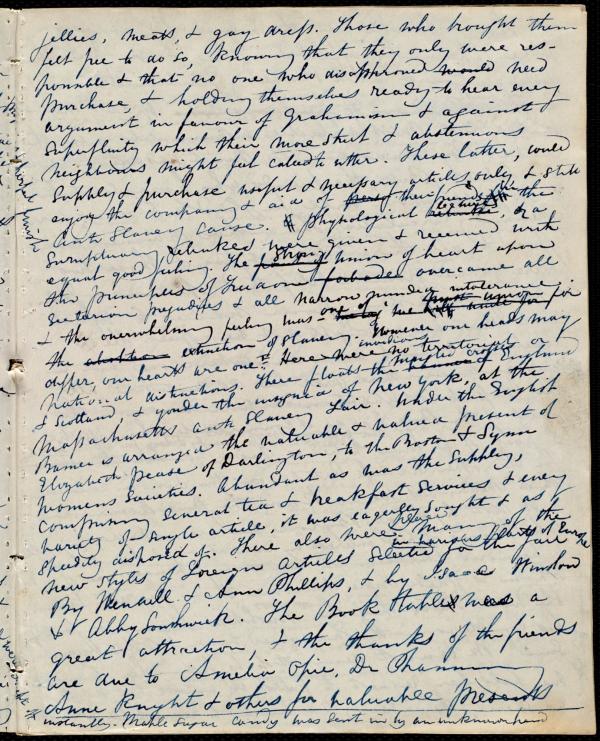 jellies, meats, & gay dress. Those who bought them
felt free to do so, knowing that they only were res-
ponsible & that no one who disapproved would need
purchase, & holding themselves ready to hear every
argument in favour of Grahamism & against
superfluity which their more strict & abstemious
neighbours might feel called to utter. These latter, could
supply & purchase useful & necessary articles only, & still
enjoy the company & aid of their friends in the
Anti Slavery cause. Physiological or a
Sumptuary rebuked were given & received with
equal good feeling. The strong union of heart upon
the principles of Freedom overcame all
sectarian prejudices & all narrow minded intolerance
& the overwhelming feeling was one for
the extinction of slavery. However our heads may
differ, our hearts are one." Here were no territorial or
national distinctions. There floats the of England
& Scotland, & yonder the insignia of New York, at the
Massachusetts Anti Slavery Fair. Under the English
Banner is arranged the valuable & valued present of
Elizabeth Pease of Darlington, to the Boston & Lynn
Womens Societies. Abundant as was the supply,
comprising several tea & breakfast services & every
variety of single article, it was eagerly sought & as
speedily disposed of. There also were many of the
new styles of Foreign Articles selected for the fair
in various parts of Europe
By Wendell & Ann Phillips, & by Isaac Winslow
& Abby Southwick. The Book table was a
great attraction, & the thanks of the friends
are due to Amelia Opie, Dr Channing
Anne Knight & others for valuable presents
instantly. Maple Sugar Candy was sent in by an unknown hand